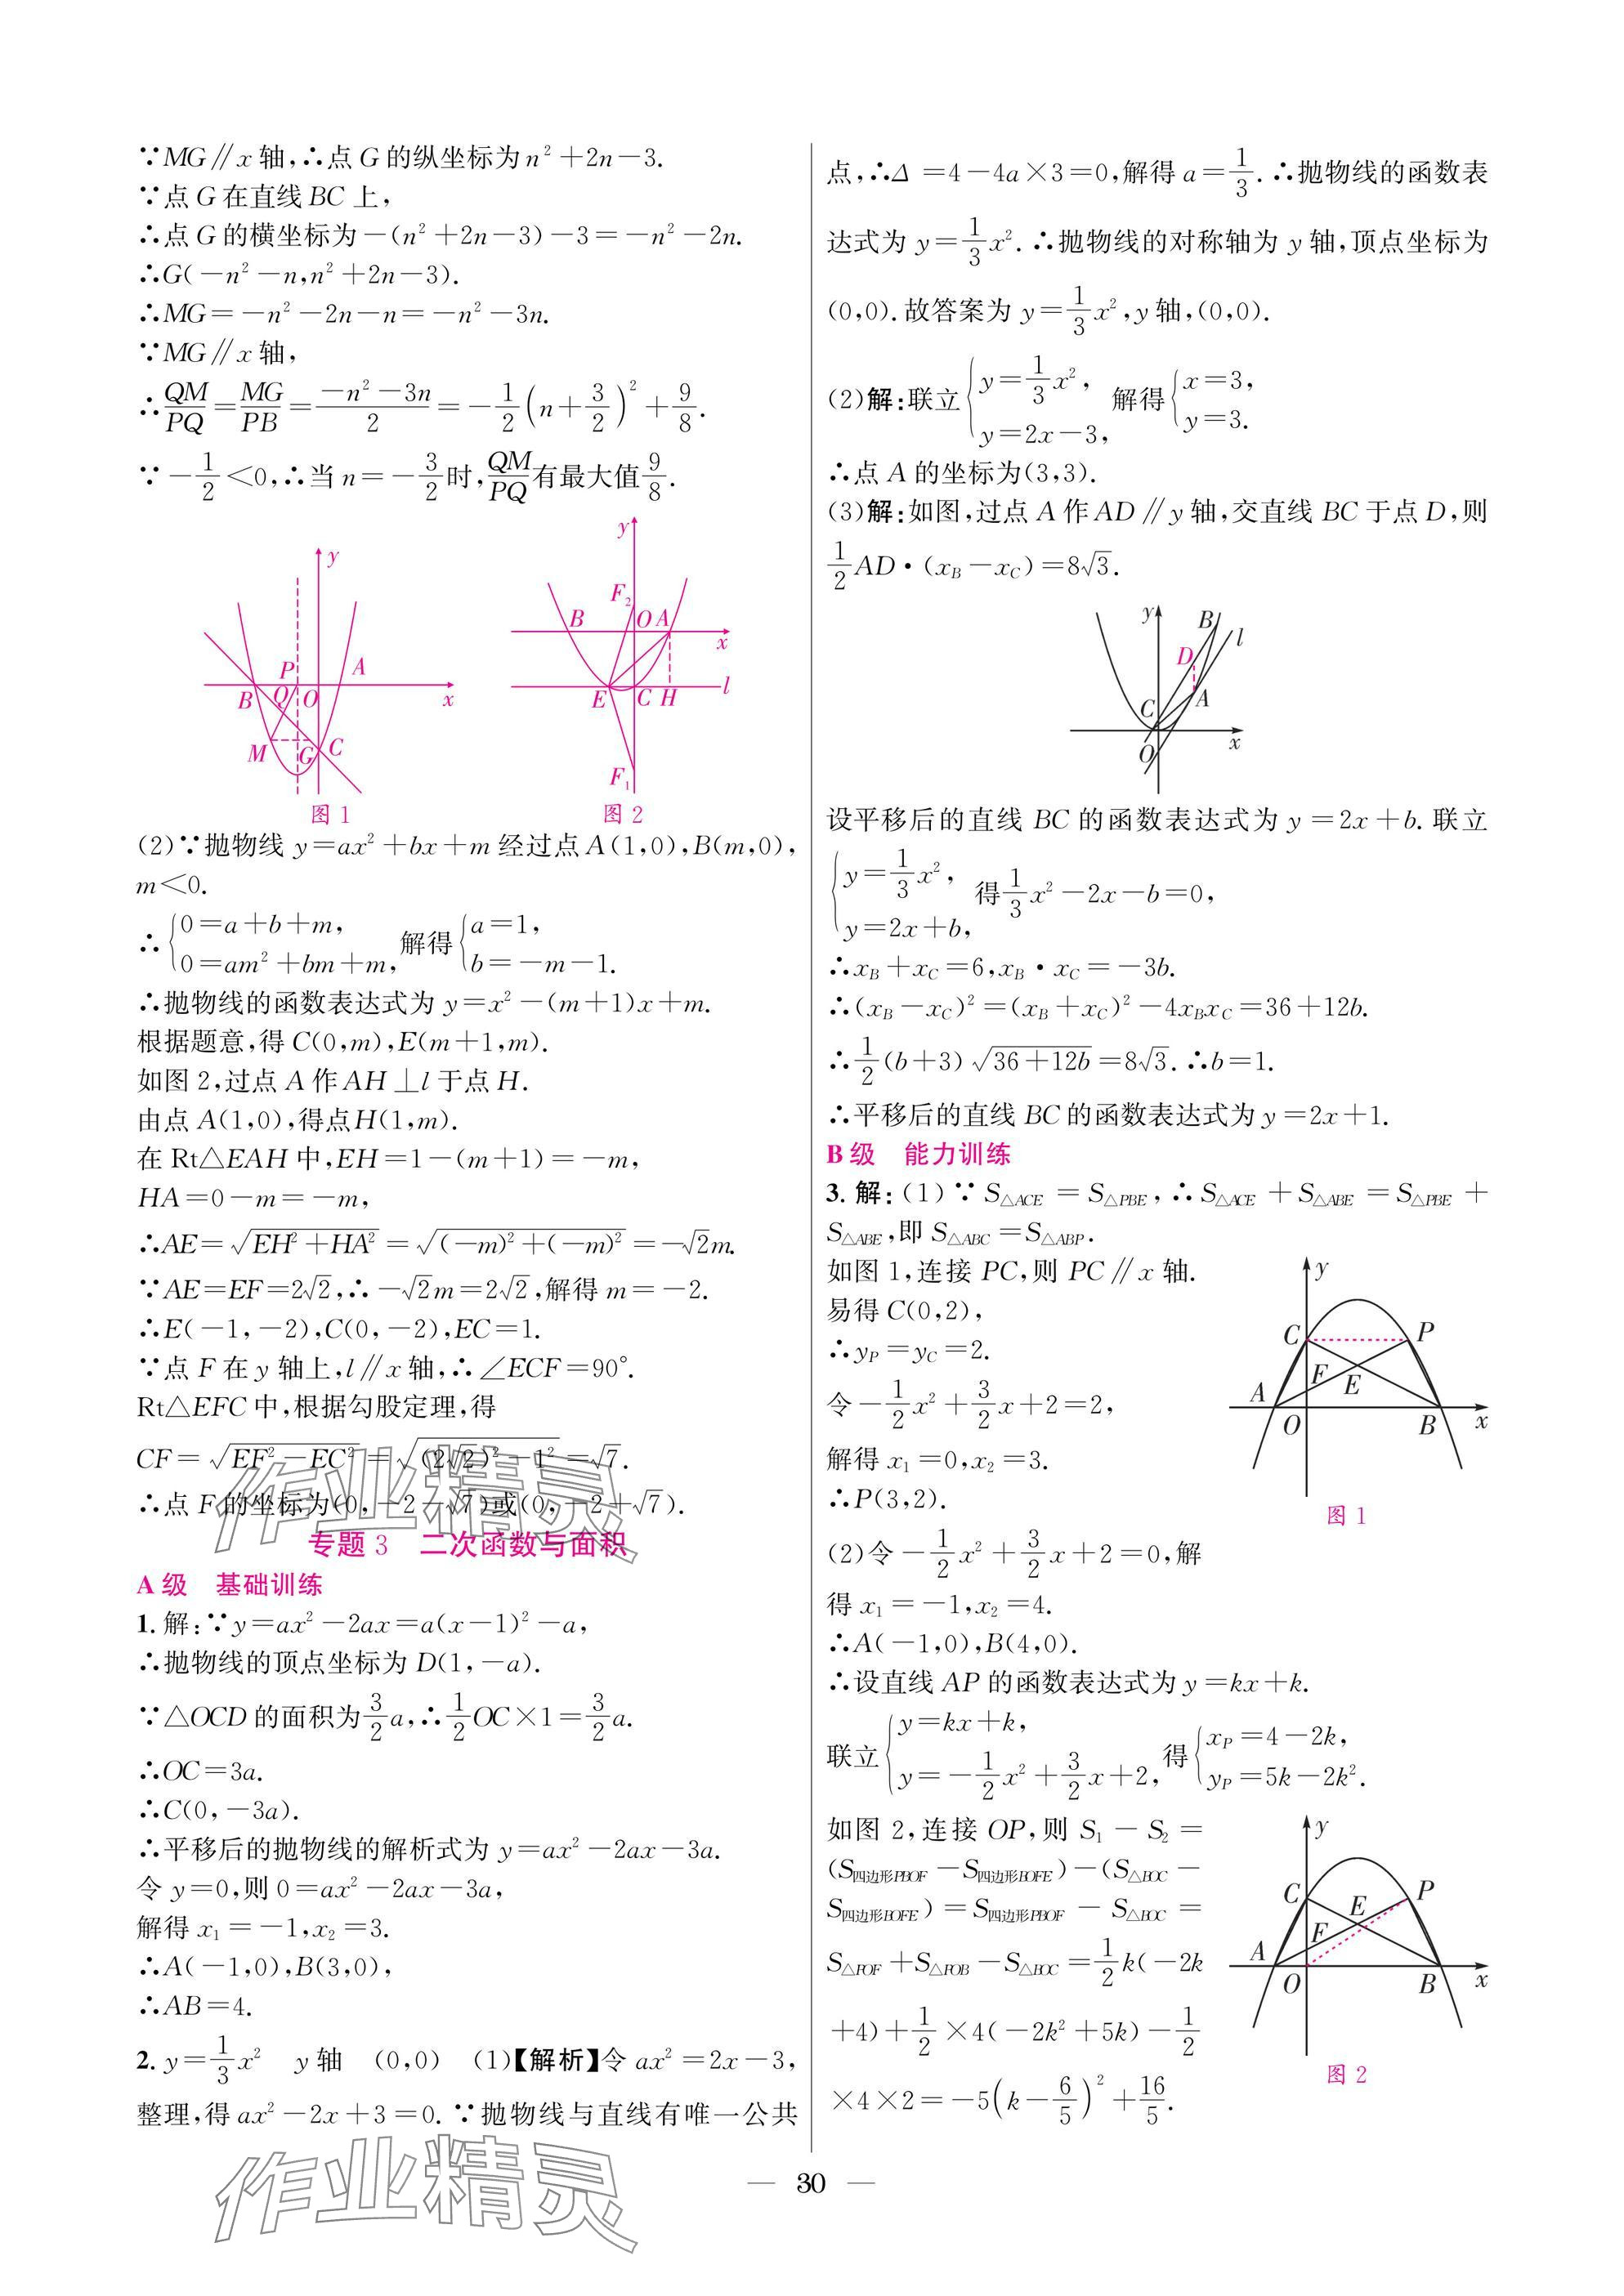 ∵MG∥x轴,∴点G的纵坐标为n²+2n-3.
∵点G在直线BC上,
∴点G的横坐标为-(n²+2n-3)-3=-n²-2n.
∴G(-n²-n,n²+2n-3).
∴MG=-n²-2n-n=-n²-3n.
∵MG∥x轴,
∴QM/PQ=MG/PB=(-n²-3n)/2=-1/2(n+3/2)²+9/8.
∵-1/2<0,∴当n=-3/2时,QM/PQ有最大值9/8.
y
P A
B Q O x
M G C
图1
y
F₂
B O A
x
E C H l
F₁
图2
(2)∵抛物线y=ax²+bx+m经过点A(1,0),B(m,0),
m<0.
∴{0=a+b+m, 0=am²+bm+m, 解得{a=1, b=-m-1.
∴抛物线的函数表达式为y=x²-(m+1)x+m.
根据题意,得C(0,m),E(m+1,m).
如图2,过点A作AH⊥l于点H.
由点A(1,0),得点H(1,m).
在Rt△EAH中,EH=1-(m+1)=-m,
HA=0-m=-m,
∴AE=√(EH²+HA²)=√((-m)²+(-m)²)=-√2m.
∵AE=EF=2√2,∴-√2m=2√2,解得m=-2.
∴E(-1,-2),C(0,-2),EC=1.
∵点F在y轴上,l∥x轴,∴∠ECF=90°.
Rt△EFC中,根据勾股定理,得
CF=√(EF²-EC²)=√((2√2)²-1²)=√7.
∴点F的坐标为(0,-2-√7)或(0,-2+√7).
专题3 二次函数与面积
A级 基础训练
1.解:∵y=ax²-2ax=a(x-1)²-a,
∴抛物线的顶点坐标为D(1,-a).
∵△OCD的面积为3/2a,∴1/2OC×1=3/2a.
∴OC=3a.
∴C(0,-3a).
∴平移后的抛物线的解析式为y=ax²-2ax-3a.
令y=0,则0=ax²-2ax-3a,
解得x₁=-1,x₂=3.
∴A(-1,0),B(3,0),
∴AB=4.
2.y=1/3x² y轴 (0,0) (1)【解析】令ax²=2x-3,
整理,得ax²-2x+3=0.∵抛物线与直线有唯一公共
点,∴Δ=4-4a×3=0,解得a=1/3.∴抛物线的函数表
达式为y=1/3x².∴抛物线的对称轴为y轴,顶点坐标为
(0,0).故答案为y=1/3x²,y轴,(0,0).
(2)解:联立{y=1/3x², y=2x-3, 解得{x=3, y=3.
∴点A的坐标为(3,3).
(3)解:如图,过点A作AD∥y轴,交直线BC于点D,则
1/2AD·(x_B-x_C)=8√3.
y B l
D
C A
O x
设平移后的直线BC的函数表达式为y=2x+b.联立
{y=1/3x², y=2x+b, 得1/3x²-2x-b=0,
∴x_B+x_C=6,x_B·x_C=-3b.
∴(x_B-x_C)²=(x_B+x_C)²-4x_Bx_C=36+12b.
∴1/2(b+3)√(36+12b)=8√3.∴b=1.
∴平移后的直线BC的函数表达式为y=2x+1.
B级 能力训练
3.解:(1)∵S△ACE=S△PBE,∴S△ACE+S△ABE=S△PBE+
S△ABE,即S△ABC=S△ABP.
如图1,连接PC,则PC∥x轴.
易得C(0,2),
∴y_P=y_C=2.
令-1/2x²+3/2x+2=2,
解得x₁=0,x₂=3.
∴P(3,2).
y
C P
F E
A O B x
图1
(2)令-1/2x²+3/2x+2=0,解
得x₁=-1,x₂=4.
∴A(-1,0),B(4,0).
∴设直线AP的函数表达式为y=kx+k.
联立{y=kx+k, y=-1/2x²+3/2x+2, 得{x_P=4-2k, y_P=5k-2k².
如图2,连接OP,则S₁-S₂=
(S四边形PBOF-S四边形BOFE)-(S△BOC-
S四边形BOFE)=S四边形PBOF-S△BOC=
S△POF+S△POB-S△BOC=1/2k(-2k
+4)+1/2×4(-2k²+5k)-1/2
×4×2=-5(k-6/5)²+16/5.
y
C E P
F
A O B x
图2
— 30 —
作业精灵
作业精灵